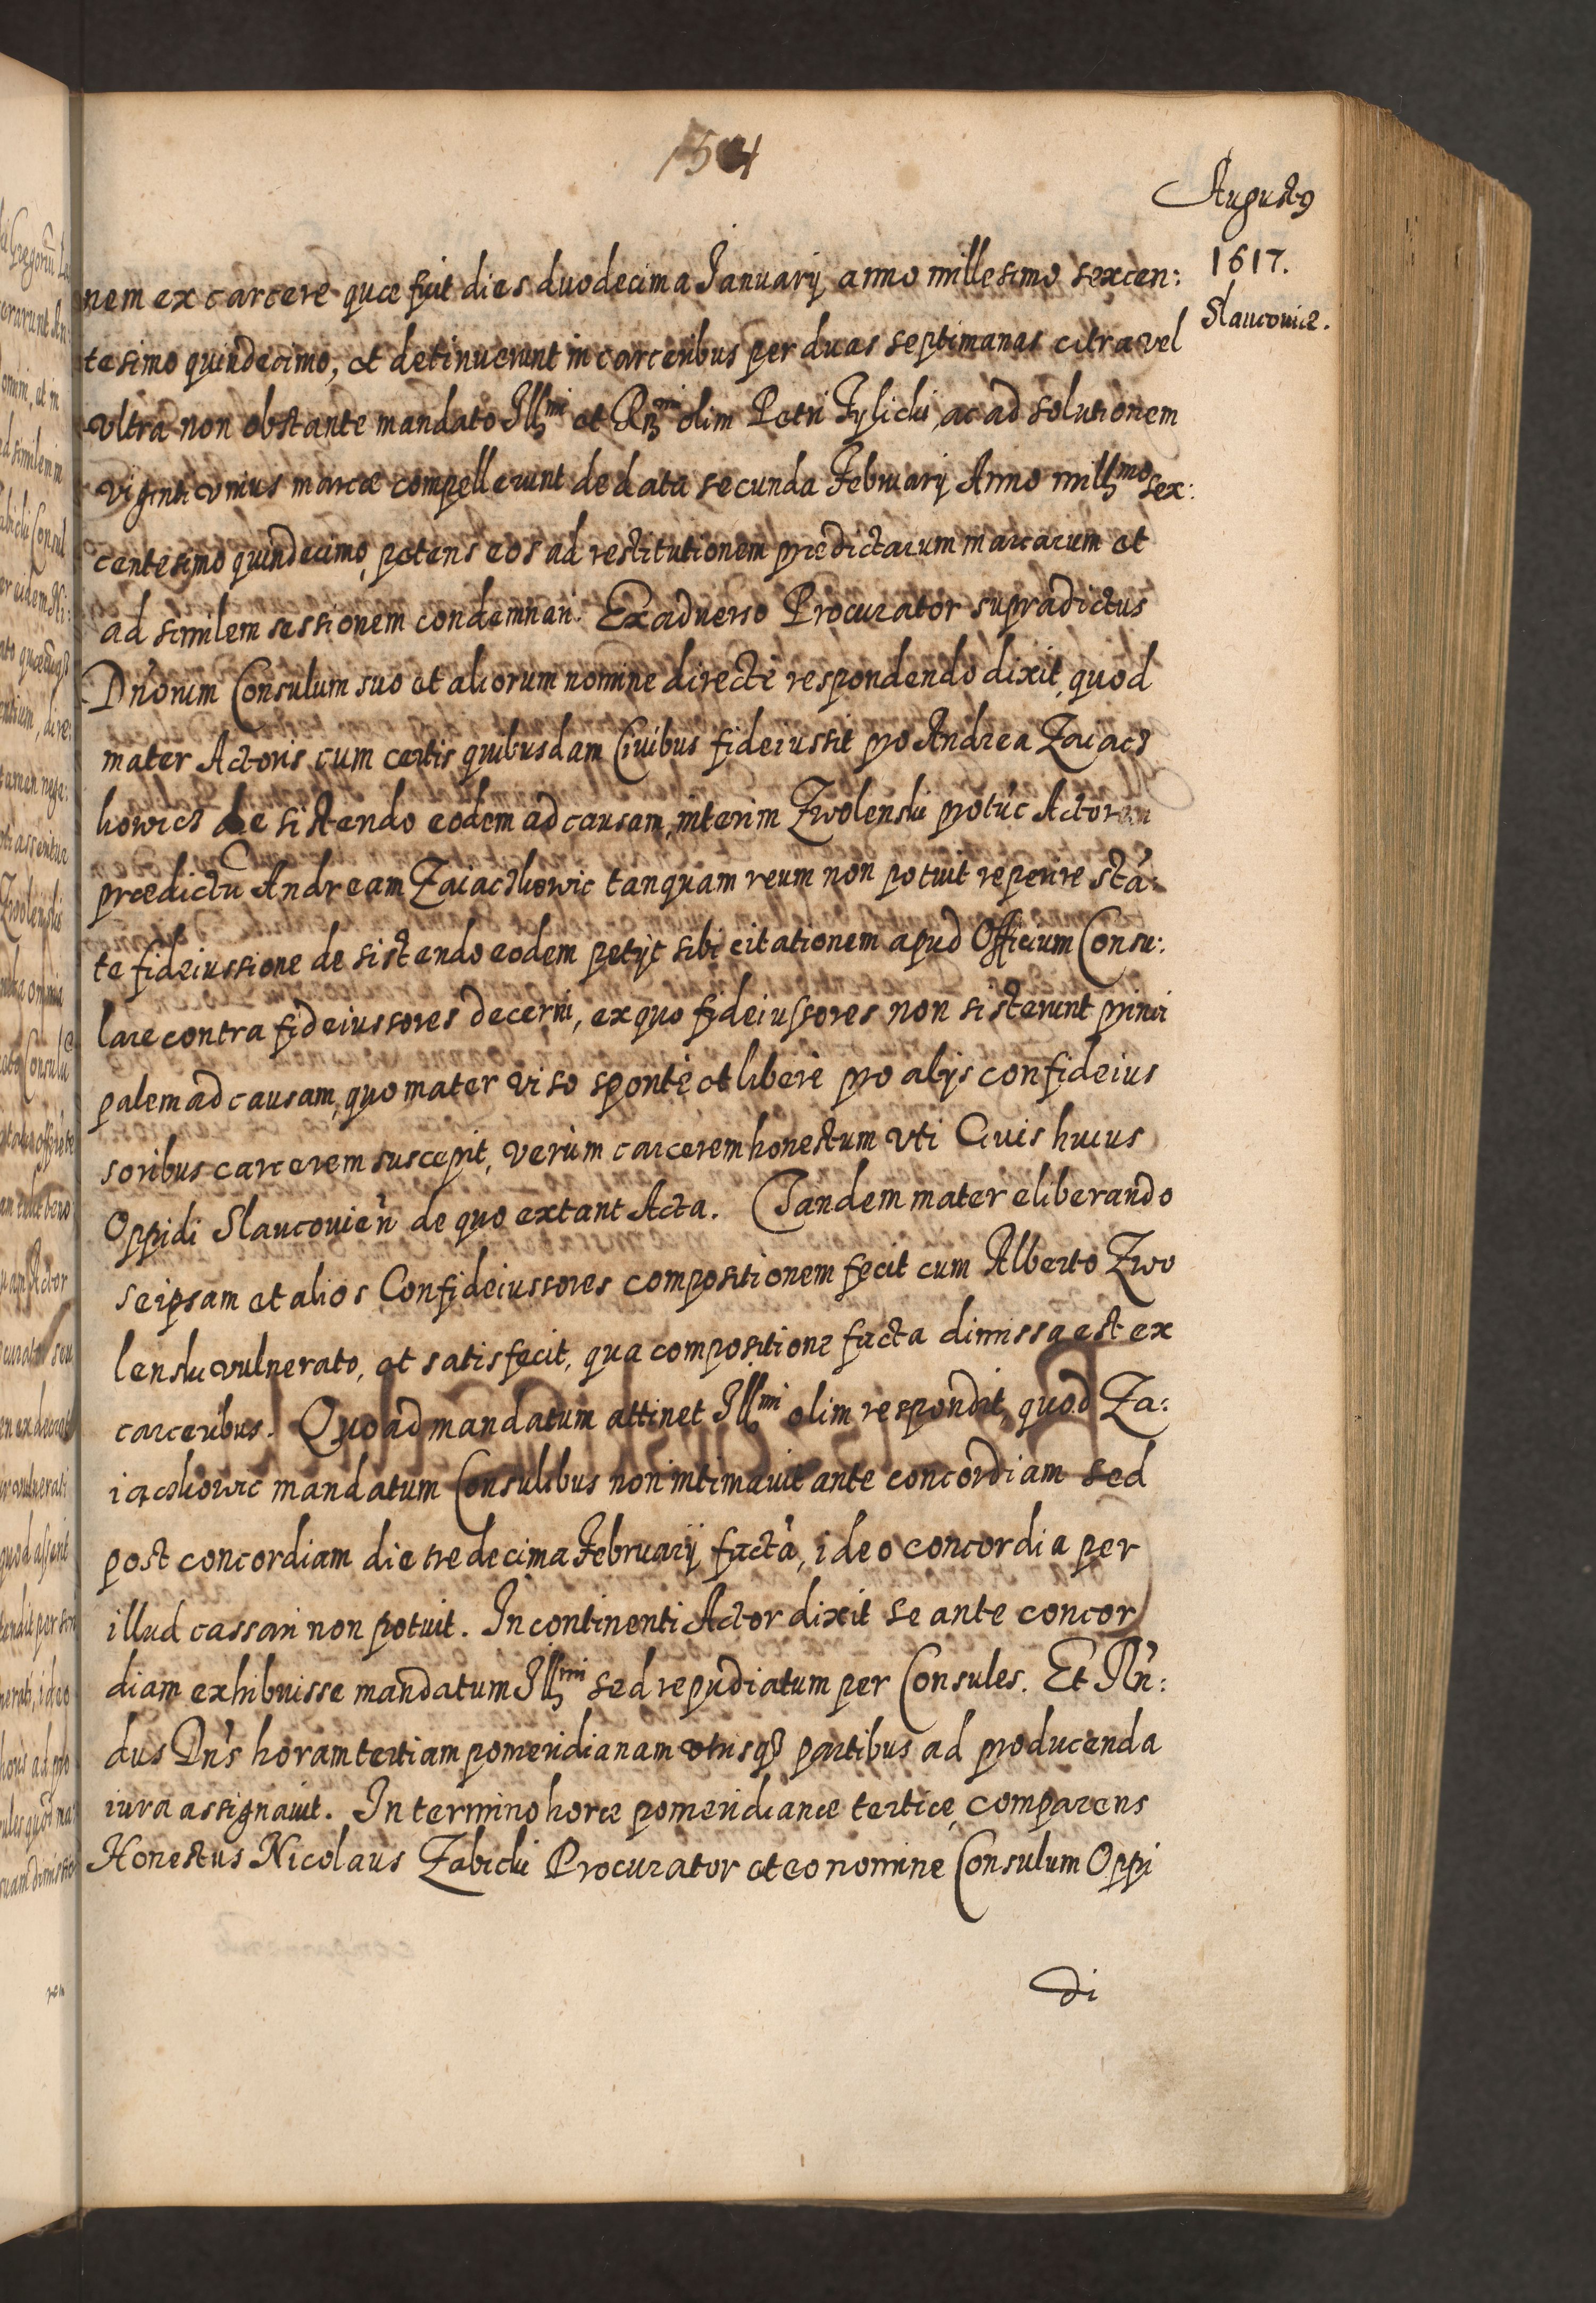 154
Augusto
1617.
Slaucouiæ.
nem ex carcere quæ fuit dies duodecima Januarij anno millesimo sexcen:
tesimo quindecimo, et detinuerunt in carceribus per duas septimanas citra vel
vltra non obstante mandato Illmi et Rmi olim Petri Tylicki, ac ad solutionem
viginti vnius marcæ compellerunt de data secunda Februarij Anno millmo sex:
centesimo quindecimo, petens eos ad restitutionem prædictarum marcarum et
ad similem sessionem condemnari. Ex aduerso Procurator supradictus
Dnorum Consulum suo et aliorum nomine directè respondendo dixit, quod
mater Actoris cum certis quibusdam Ciuibus fideiussit pro Andrea Zaiacz
kowicz de sistendo eodem ad causam, interim Zwolenski protúc Actorem
prædictu Andream Zaiaczkowic tanquam reum non potuit reperire stá:
te fideiussione de sistendo eodem petijt sibi citationem apud Officium Consu:
lare contra fideiussores decerni, ex quo fideiussores non sisterunt princi
palem ad causam, quo mater viso spontè et liberè pro alijs confideius
soribus carcerem suscepit, verùm carcerem honestum vti Ciuis huius
Oppidi Slaucouień de quo extant Acta. Tandem mater eliberando
seipsam et alios Confideiussores compositionem fecit cum Alberto Zwo
lenski vulnerato, et satisfecit, qua compositione facta dimissa est ex
carceribus. Quo ad mandatum attinet Illmi olim respondit, quod Za:
iaczkowic mandatum Consulibus non intimauit ante concordiam sed
post concordiam die tredecima Februarij factà, ideo concordia per
illud cassari non potuit. In continenti Actor dixit se ante concor
diam exhibuisse mandatum Illmi sed repudiatum per Consules. Et Rń:
dus Dńs horam tertiam pomeridianam vtrisq3 partibus ad producenda
iura assignauit. In termino horæ pomeridianæ tertiæ comparens
Honestus Nicolaus Zabicki Procurator et eo nomine Consulum Oppi
di